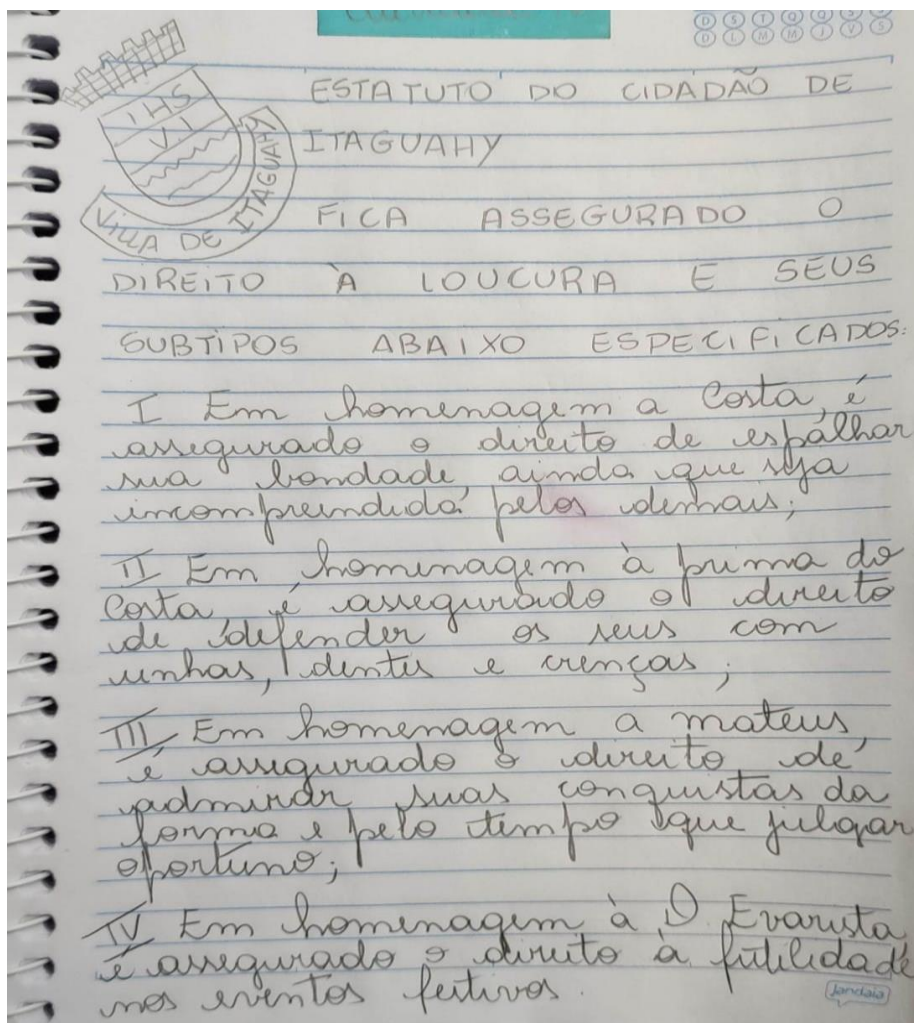 D S T Q Q S S
D L M M J V S
ESTATUTO DO CIDADÃO DE
ITAGUAHY
IHS
VI
VILLA DE ITAGUAHY
FICA ASSEGURADO O
DIREITO À LOUCURA E SEUS
SUBTIPOS ABAIXO ESPECIFICADOS:
I Em homenagem a Costa, é
assegurado o direito de espalhar
sua bondade, ainda que seja
incompreendida pelos demais;
II Em homenagem à prima do
Costa, é assegurado o direito
de defender os seus com
unhas, dentes e crenças;
III Em homenagem a mateus,
é assegurado o direito de
admirar suas conquistas da
forma e pelo tempo que julgar
oportuno;
IV Em homenagem à D Evarista
é assegurado o direito à futilidade
nos eventos festivos.
Jandaia